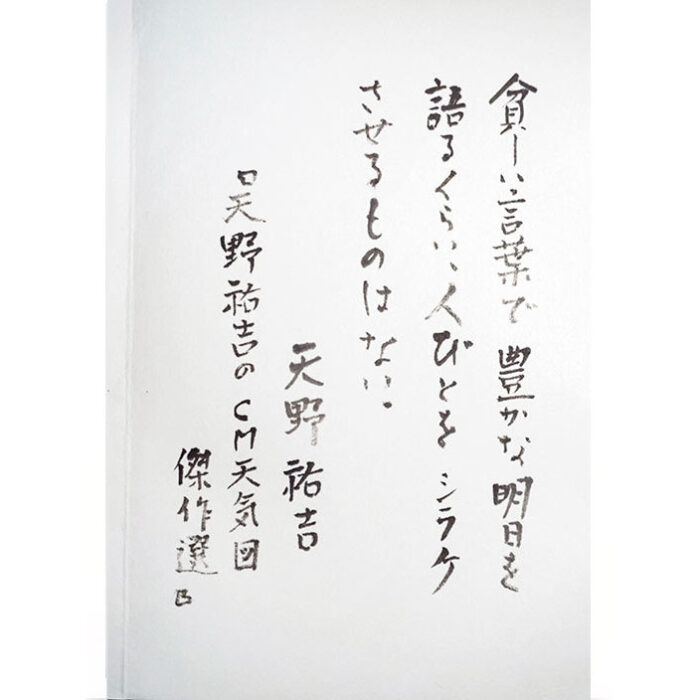 貧しい言葉で豊かな明日を
語るくらい、人びとをシラケ
させるものはない。
天野祐吉
天野祐吉のCM天気図
傑作選